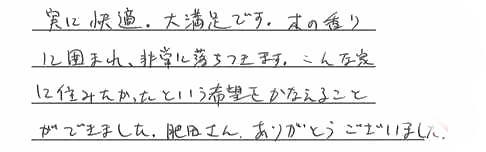 実に快適。大満足です。木の香り
に囲まれ、非常に落ちつきます。こんな家
に住みたかったという希望をかなえること
ができました。肥田さん、ありがとうございました。